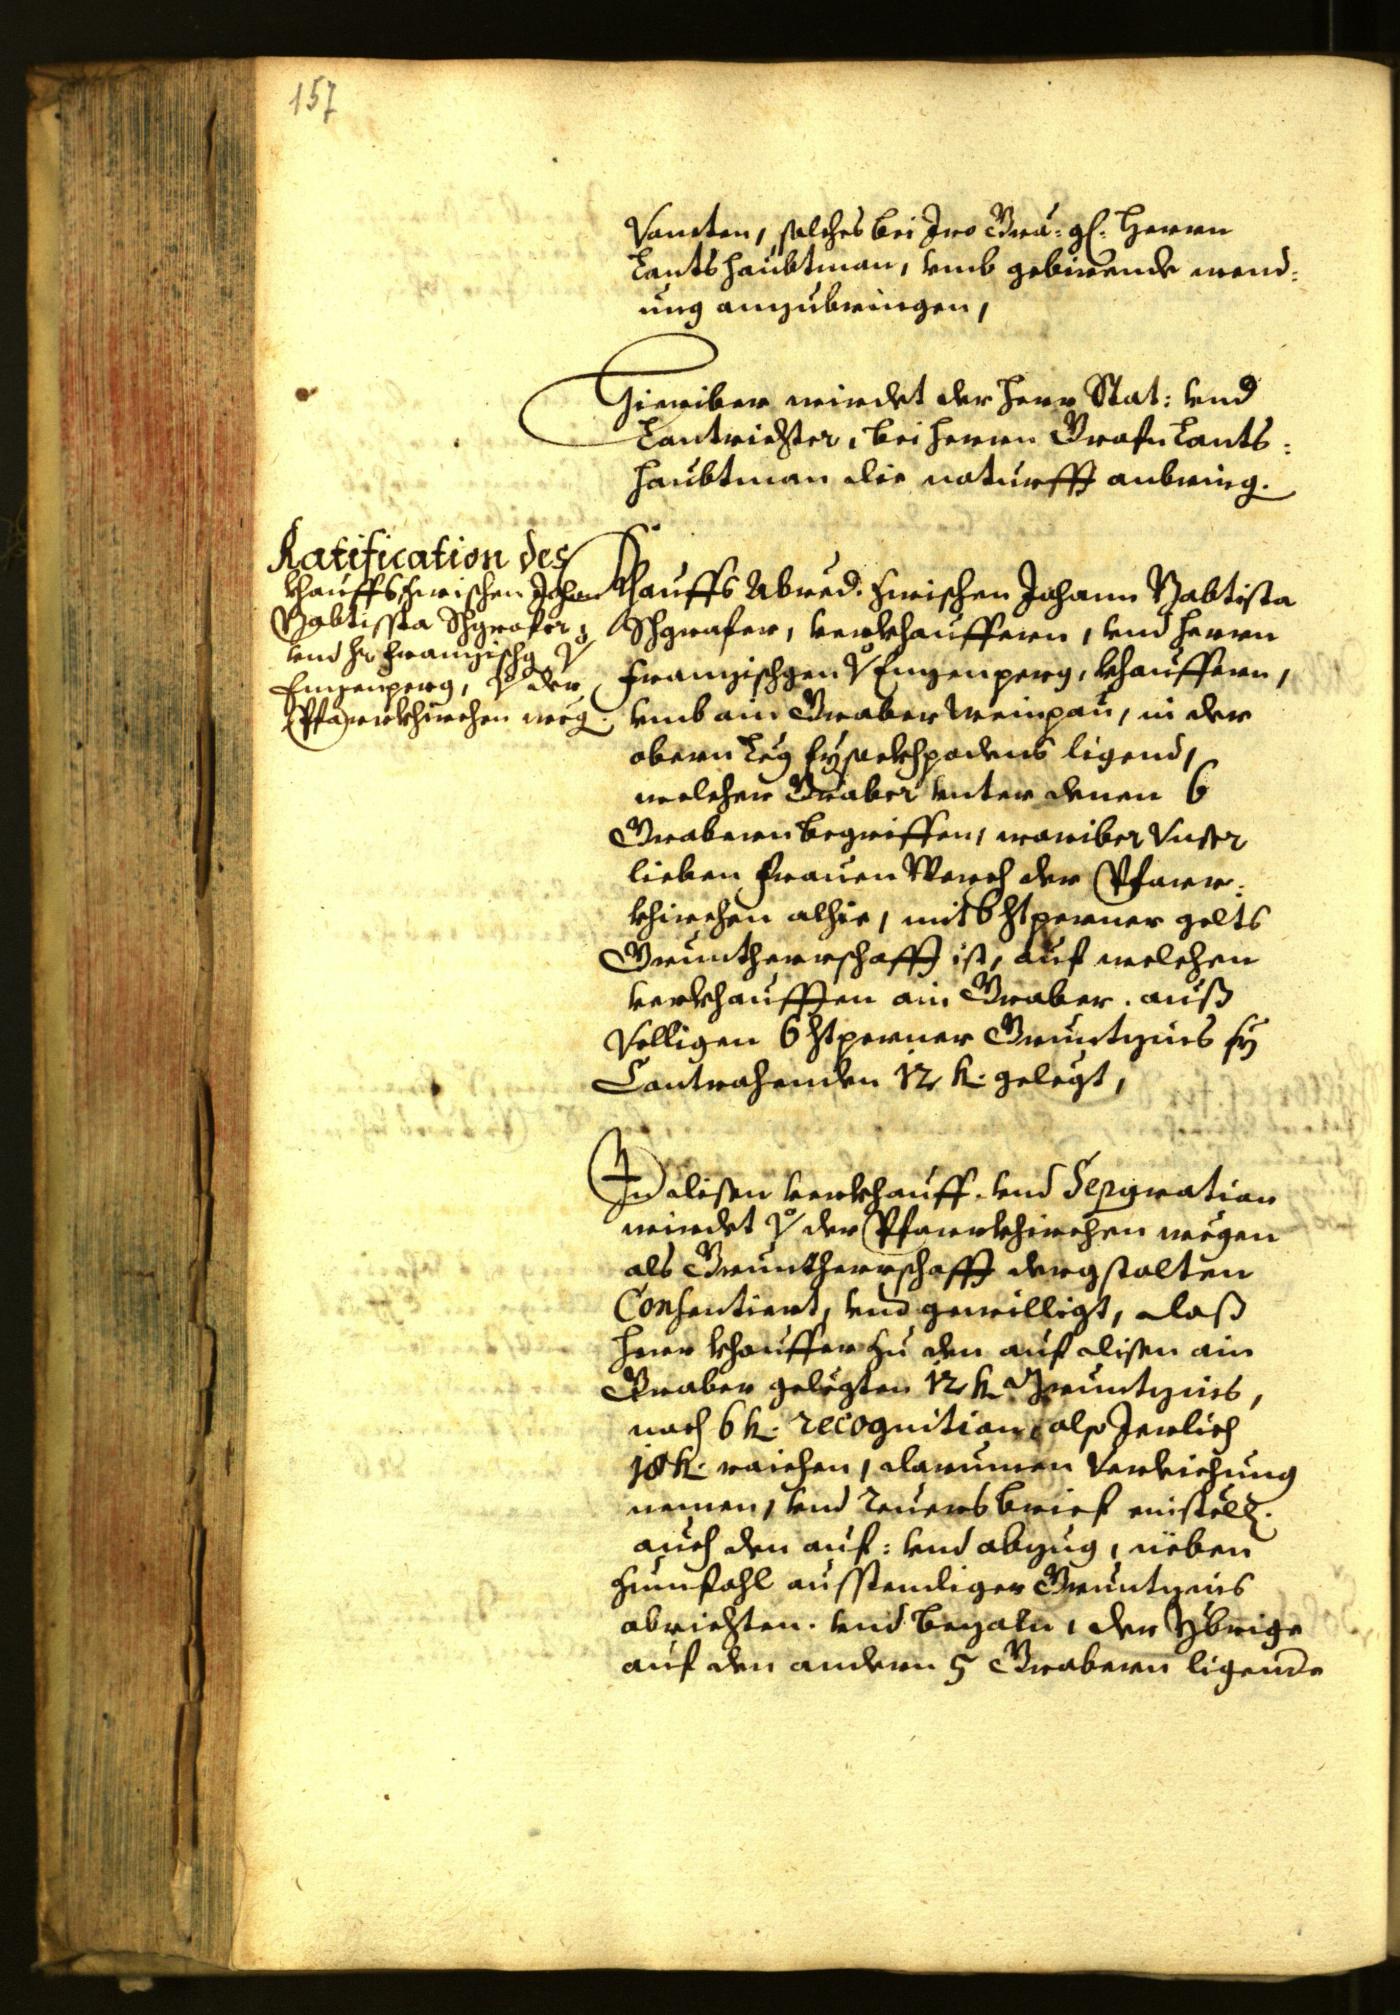 157
Vancten, solches bei Iro Gra: gl: Herrn
Lantshaubtman, vmb gebirende wend:
ung anzubringen,
Hieriber wirdet der Herr Stat: vnd
Lantrichter, bei Herrn Grafn Lants:
haubtman die noturfft anbring.
Ratification des
khauffs zwischen Johan
Babtissta Schgrafer,
vnd Hr Franzischg v
Enzenperg, v der
Pfarrkhirchen weg.
Khauffs Abred. zwischen Johann Babtista
Schgrafer, verkhauffern, vnd Herrn
Franzischgen v Enzenperg, khauffern,
vmb ain Graber Weinpau, in der
obern Leg ligend,
welcher Graber vnter denen 6
Grabern begriffen, wariber Vnser
lieben Frauen Werch der Pfarr:
khirchen alhie, mit 6 perner gelts
Gruntherrschafft ist, auf welchen
verkhaufften ain Graber. auß
Velligen 6 perner Gruntzins sy
Contrahenden 12 k. gelegt,
In disen verkhauff. vnd Separation
wirdet v der Pfarrkhirchen wegen
als Gruntherrschafft dergstalten
Consentiert, vnd gewilligt, daß
Herr khauffer zu den auf disen ain
Graber gelegten 12 k Gruntzins,
noch 6 k. recognition, also Jerlich
18 k. raichen, darumen Verleichung
nemen, vnd Reuersbrief einstell.
auch den auf: vnd abzug, neben
zumfahl ausstendiger Gruntzins
abrichten. vnd bezaln, der Ybrige
auf den andern 5 Grabern ligende